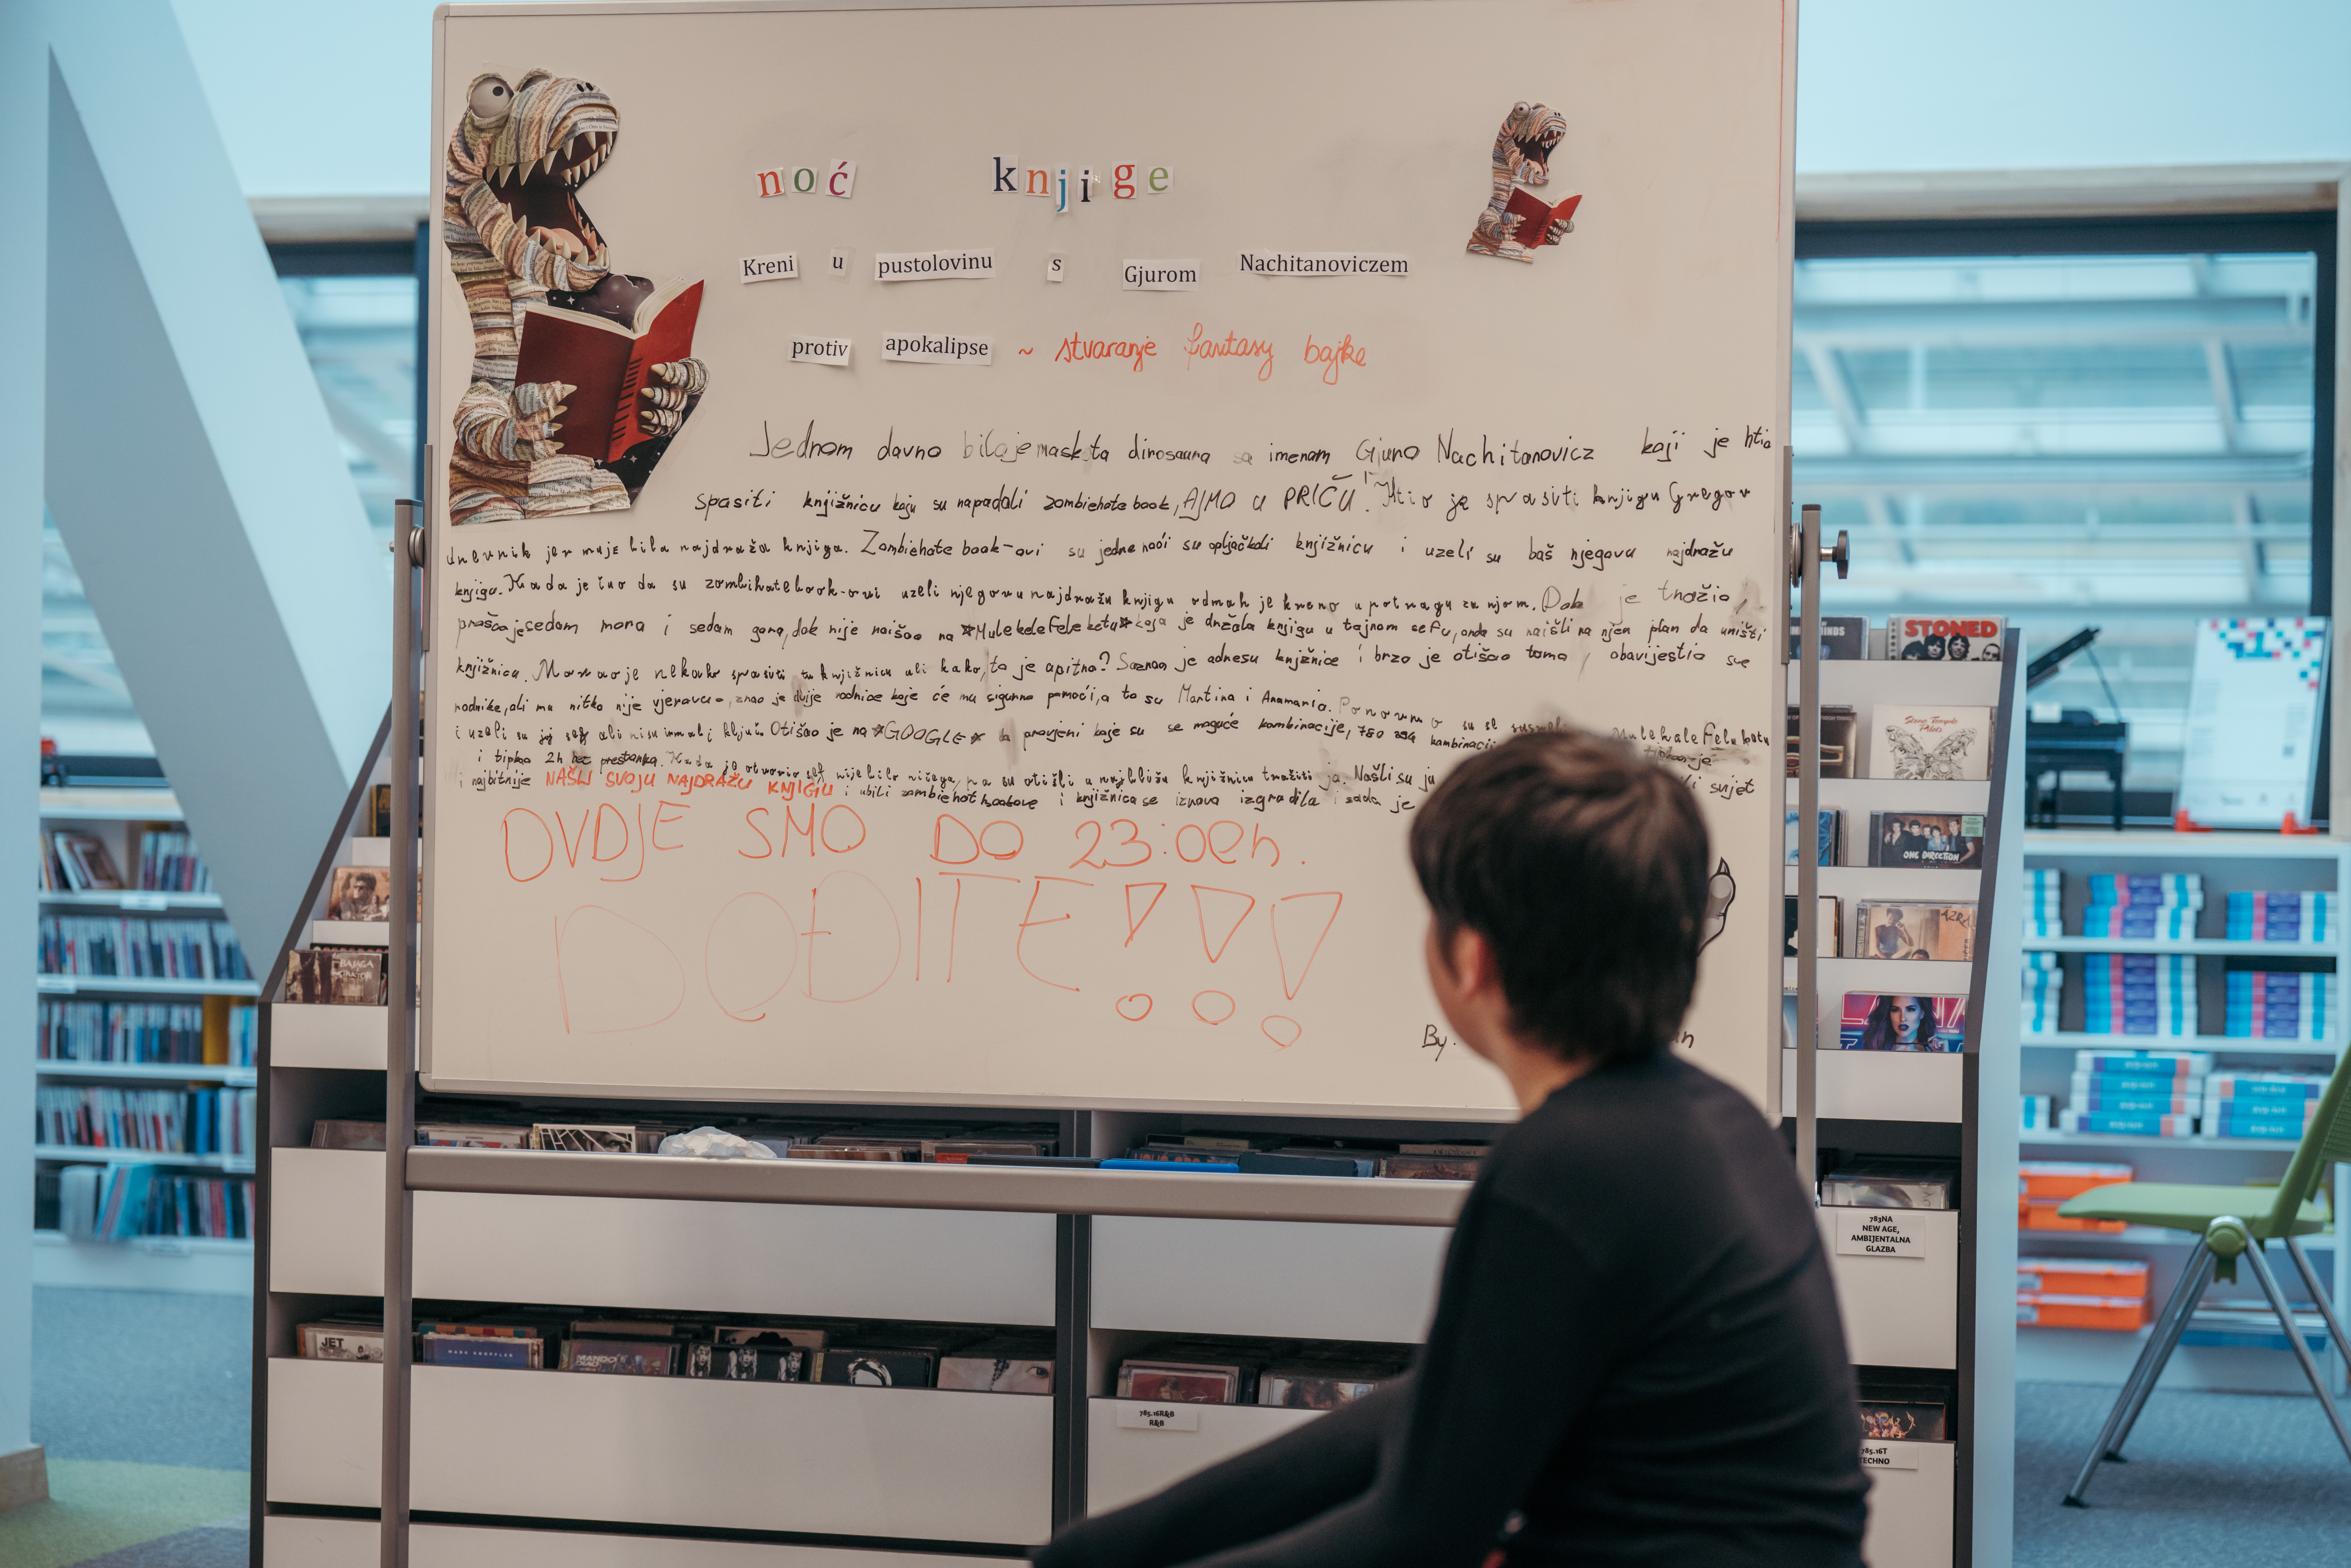 noć knjige
Kreni u pustolovinu s Gjurom Nachitanoviczem
protiv apokalipse ~ stvaranje fantasy bajke
Jednom davno bila je maskota dinosaura sa imenom Gjuro Nachitanovicz koji je htio
spasiti knjižnicu koju su napadali zombiehate book, AJMO U PRIČU! Htio je spasiti knjigu Gregov
dnevnik jer mu je bila najdraža knjiga. Zombiehate book-ovi su jedne noći su opljačkali knjižnicu i uzeli su baš njegovu najdražu
knjigu. Kada je čuo da su zombihatebook-ovi uzeli njegovu najdražu knjigu odmah je krenuo u potragu za njom. Dok je tražio,
prošao je sedam mora i sedam gora, dok nije naišao na *Mulekelefeleketu* koja je držala knjigu u tajnom sefu, onda su naišli na njen plan da uništi
knjižnicu. Morao je nekako spasiti tu knjižnicu ali kako, to je bitno? Saznao je adresu knjižnice i brzo je otišao tamo, obavijestio sve
rodnike, ali mu nitko nije vjerovao, znao je dvije rodnice koje će mu sigurno pomoći, a to su Martina i Anamaria. Ponovno su se
i uzeli su joj sef ali nisu imali ključ. Otišao je na *GOOGLE* da provjeni koje su se moguće kombinacije, 780 294 kombinacij
i tipkao 2h bez prestanka. Kada je otvorio sef nije bilo ničega, pa su otišli u najbližu knjižnicu tražiti ju. Našli su ju
i najbitnije NAŠLI SVOJU NAJDRAŽU KNJIGU i ubili zombiehatbookove i knjižnica se iznova izgradila i sada je svijet
OVDJE SMO DO 23:00h.
DOĐITE!!!
By.
STONED
ONE DIRECTION
AZRA
BAJAGA
JET
MARK KNOPFLER
MANDO DIAO
785.16R&B
R&B
783NA
NEW AGE,
AMBIJENTALNA
GLAZBA
785.16T
TECHNO